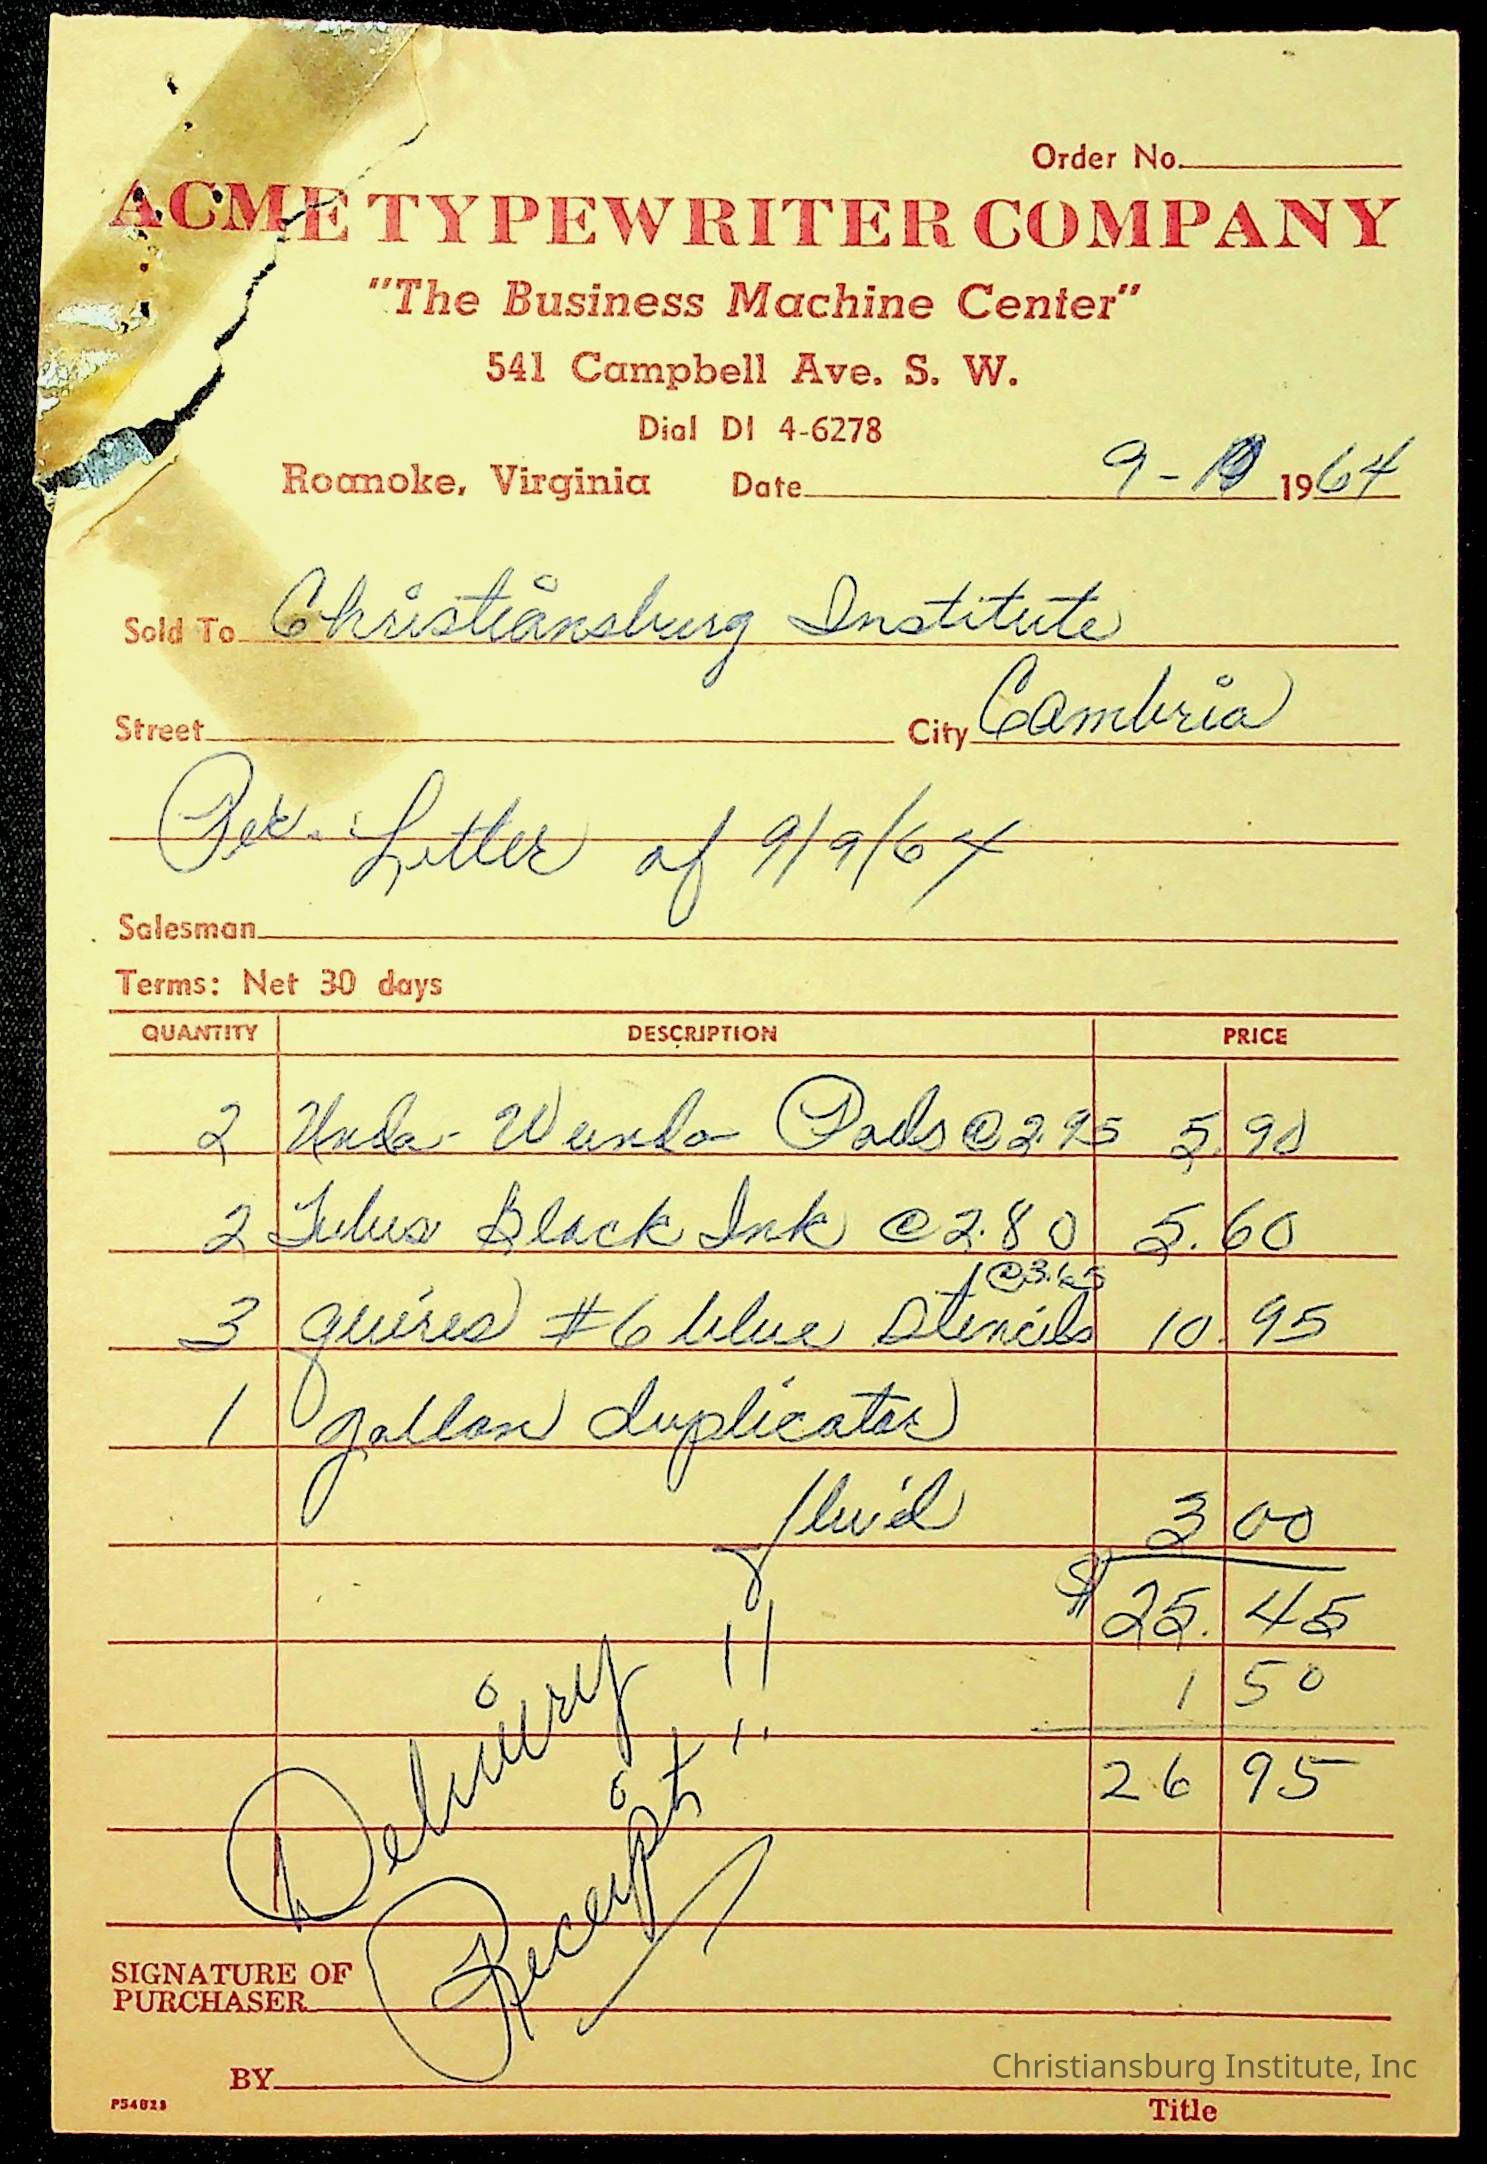 Order No.
ACME TYPEWRITER COMPANY
"The Business Machine Center"
541 Campbell Ave. S. W.
Dial DI 4-6278
Roanoke, Virginia Date 9-10 1964
Sold To Christiansburg Institute
Street City Cambria
Per. Letter of 9/9/64
Salesman
Terms: Net 30 days
QUANTITY DESCRIPTION PRICE
2 Unda-Wunda Pads @ 2.95 5.90
2 Tubes Black Ink @ 2.80 5.60
@3.65
3 quires #6 blue Stencils 10.95
1 gallon duplicator
fluid 3 00
$25.45
1 50
26 95
Delivery !!
Receipt !!
SIGNATURE OF
PURCHASER
BY
Christiansburg Institute, Inc
P54023
Title